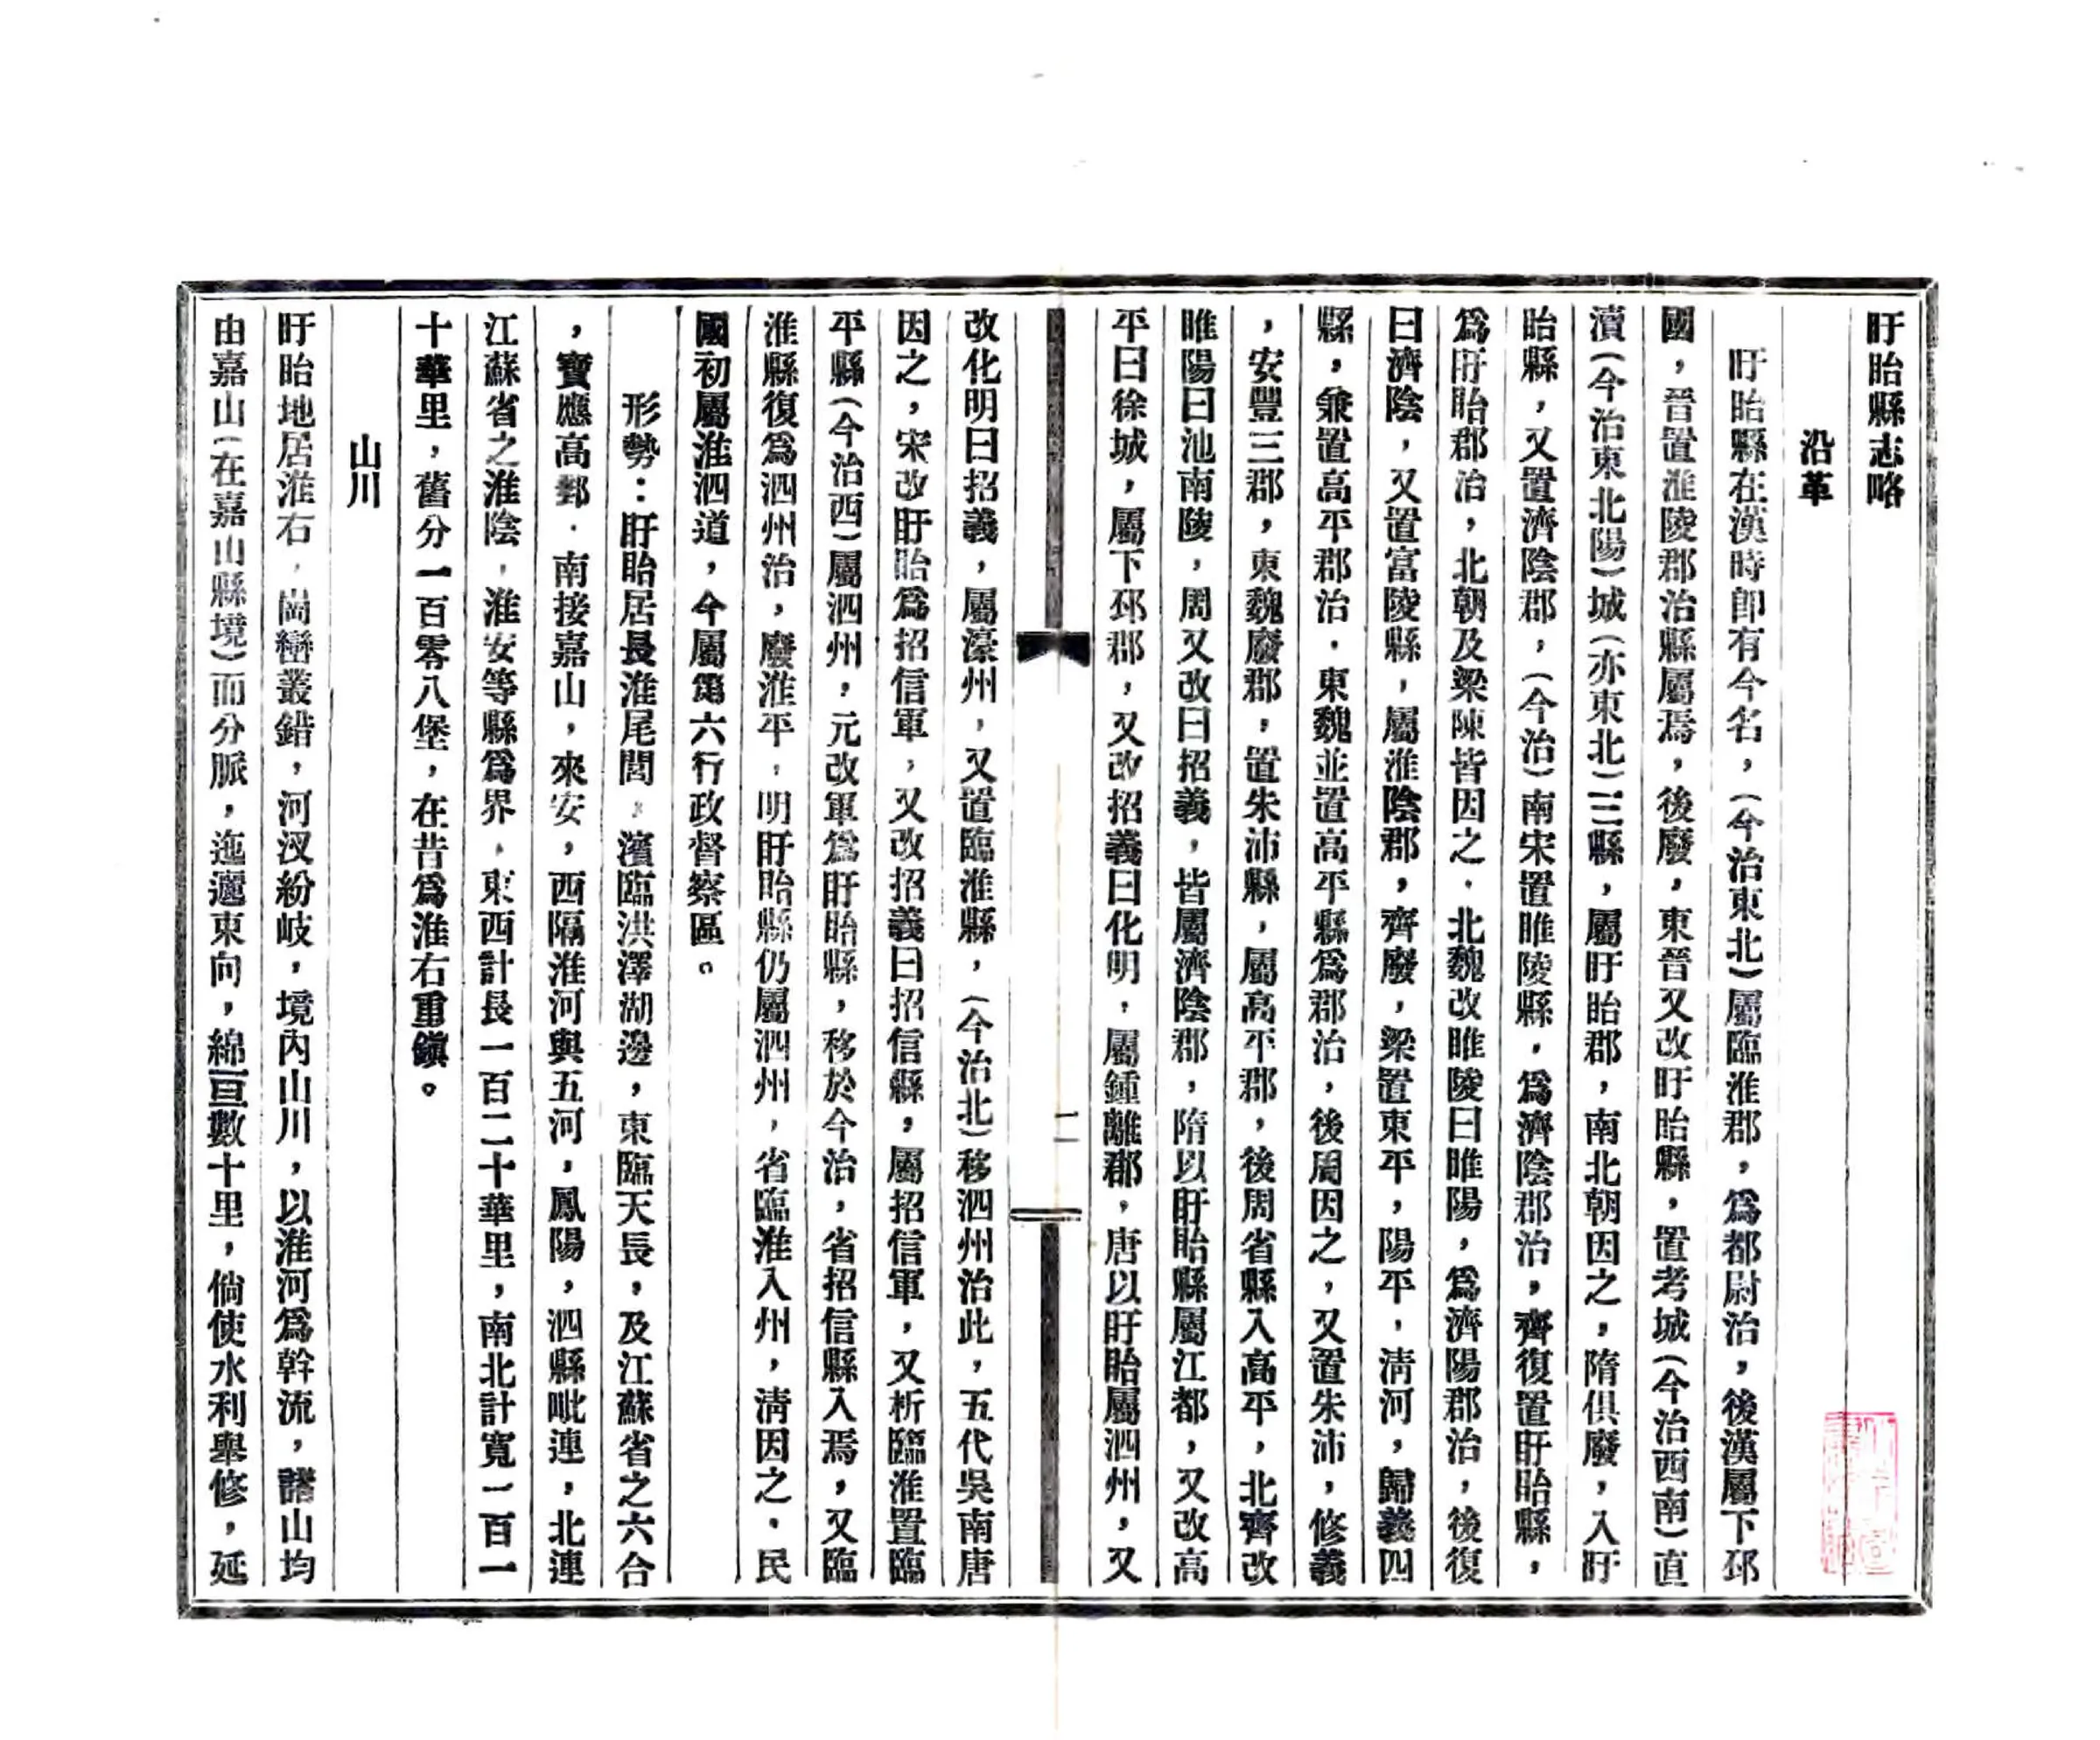 盱眙縣志略
沿革
盱眙縣在漢時卽有今名，（今治東北）屬臨淮郡，爲都尉治，後漢屬下邳
國，晉置淮陵郡治縣屬焉，後廢，東晉又改盱眙縣，置考城（今治西南）直
瀆（今治東北陽）城（亦東北）三縣，屬盱眙郡，南北朝因之，隋俱廢，入盱
眙縣，又置濟陰郡，（今治）南宋置睢陵縣，爲濟陰郡治，齊復置盱眙縣，
爲盱眙郡治，北朝及梁陳皆因之．北魏改睢陵曰睢陽，爲濟陽郡治，後復
曰濟陰，又置富陵縣，屬淮陰郡，齊廢，梁置東平，陽平，淸河，歸義四
縣，兼置高平郡治．東魏並置高平縣爲郡治，後周因之，又置朱沛，修義
，安豐三郡，東魏廢郡，置朱沛縣，屬高平郡，後周省縣入高平，北齊改
睢陽曰池南陵，周又改曰招義，皆屬濟陰郡，隋以盱眙縣屬江都，又改高
平曰徐城，屬下邳郡，又改招義曰化明，屬鍾離郡，唐以盱眙屬泗州，又
二
改化明曰招義，屬濠州，又置臨淮縣，（今治北）移泗州治此，五代吳南唐
因之，宋改盱眙爲招信軍，又改招義曰招信縣，屬招信軍，又析臨淮置臨
平縣（今治西）屬泗州，元改軍爲盱眙縣，移於今治，省招信縣入焉，又臨
淮縣復爲泗州治，廢淮平，明盱眙縣仍屬泗州，省臨淮入州，淸因之．民
國初屬淮泗道，今屬第六行政督察區。
形勢：盱眙居長淮尾閭，濱臨洪澤湖邊，東臨天長，及江蘇省之六合
，寶應高郵．南接嘉山，來安，西隔淮河與五河，鳳陽，泗縣毗連，北連
江蘇省之淮陰，淮安等縣爲界，東西計長一百二十華里，南北計寬一百一
十華里，舊分一百零八堡，在昔爲淮右重鎭。
山川
盱眙地居淮右，崗巒叢錯，河汊紛岐，境內山川，以淮河爲幹流，諸山均
由嘉山（在嘉山縣境）而分脈，迤邐東向，綿亘數十里，倘使水利舉修，延